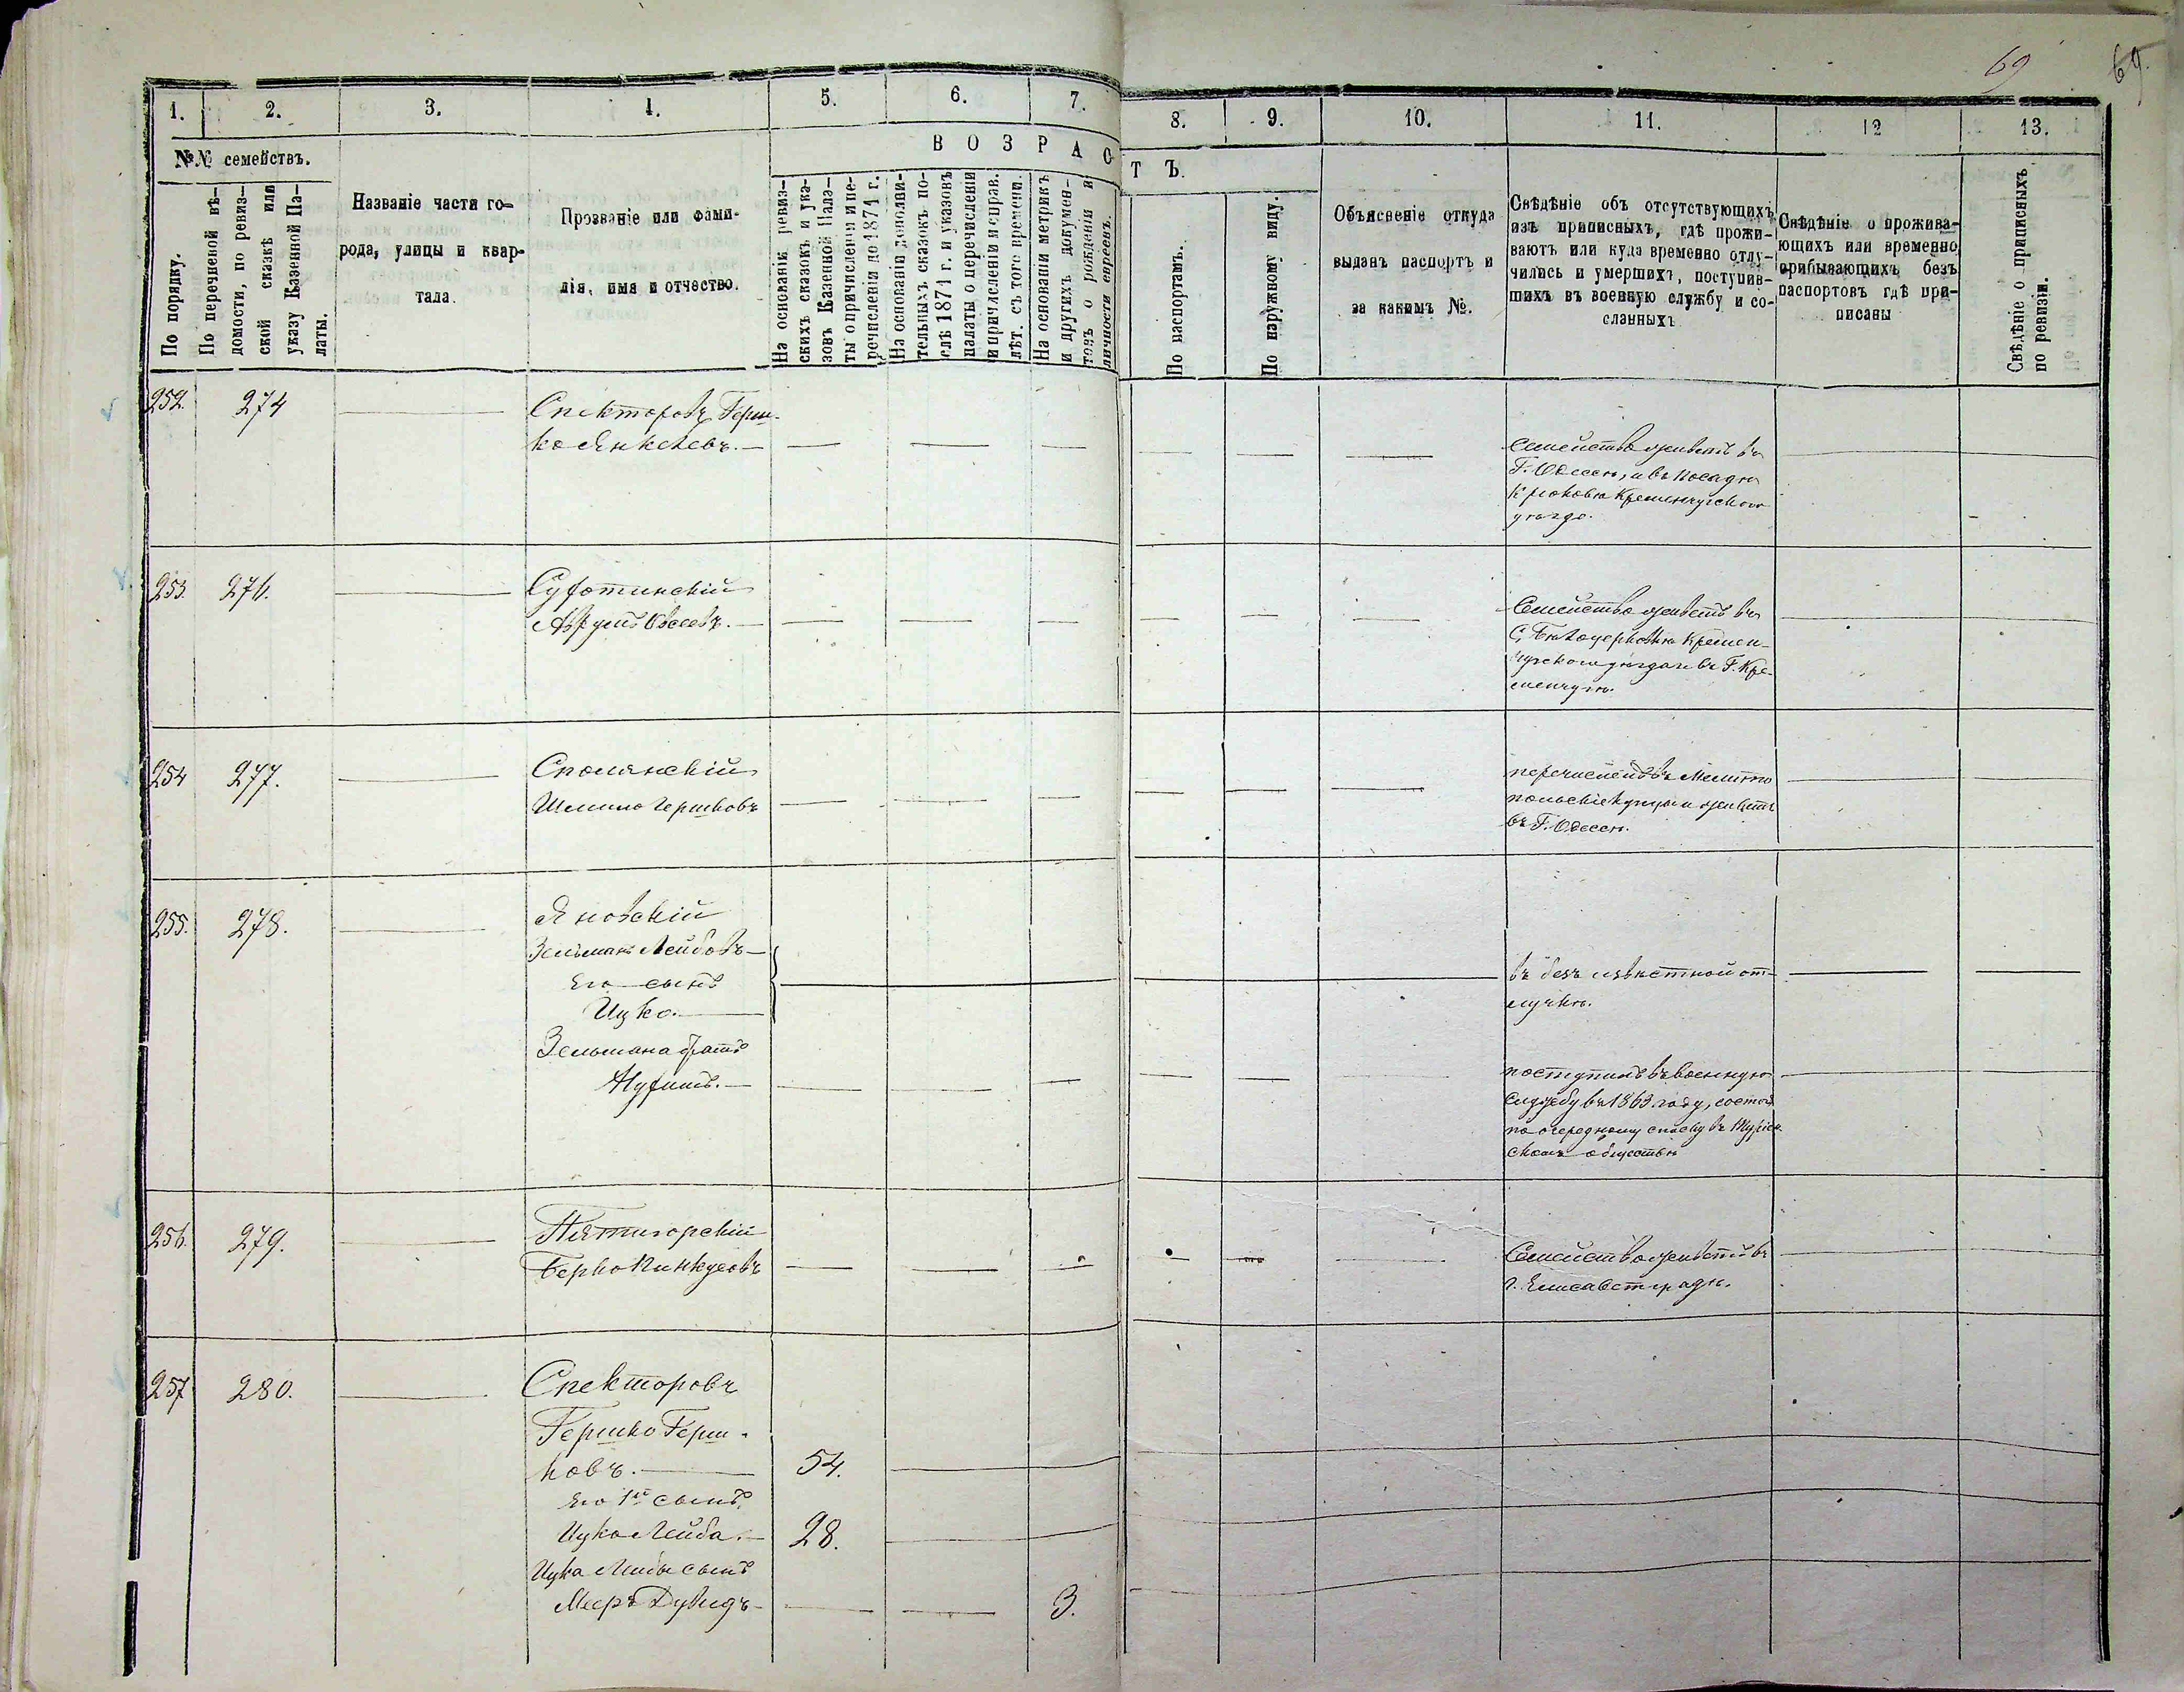 69 69.
1. 2. 3. 4. 5. 6. 7. 8. 9. 10. 11. 12 13.
№№ семействъ.
ВОЗРАСТЪ.
По порядку.
По перечневой вѣ-
домости, по ревиз-
ской сказкѣ или
указу Казенной Па-
латы.
Названіе части го-
рода, улицы и квар-
тала.
Прозваніе или фами-
лія, имя и отчество.
На основаніи ревиз-
скихъ сказокъ и ука-
зовъ Казенной Пала-
ты о причисленіи и пе-
речисленіи до 1871 г.
На основаніи дополни-
тельныхъ сказокъ по-
слѣ 1871 г. и указовъ
палаты о перечисленіи
и причисленіи исправ.
лѣт. съ того времени.
На основаніи метрикъ
и другихъ докумен-
товъ о рожденіи и
личности евреевъ.
По паспортамъ.
По наружному виду.
Объясненіе откуда
выданъ паспортъ и
за какимъ №.
Свѣдѣніе объ отсутствующихъ
изъ приписныхъ, гдѣ прожи-
ваютъ или куда временно отлу-
чились и умершихъ, поступив-
шихъ въ военную службу и со-
сланныхъ
Свѣдѣніе о прожива-
ющихъ или временно
прибывающихъ безъ
паспортовъ гдѣ при-
писаны
Свѣдѣніе о приписныхъ
по ревизіи.
252. 274 Спекторовъ Герш-
ко Янкелевъ.
Семейство живетъ въ
Г. Одессѣ, и въ посадѣ
Крюковѣ Кременчугского
уѣзда.
253. 276. Суботинскій
Аврумъ Овсеевъ.
Семейство живетъ въ
С. Бѣлоцерковкѣ Кремен-
чугского уѣзда и въ Г. Кре-
менчугѣ.
254 277. Сполянскій
Шлиомо Гершковъ
перечисленъ въ Мелито
польскіе купцы и живетъ
въ Г. Одессѣ.
255. 278. Яновскій
Зельманъ Лейбовъ
Его сынъ
Ицко.
въ безъ извѣстной от-
лучкѣ.
Зельмана братъ
Нусимъ.
поступилъ въ военную
службу въ 1863 году, состоя
по очередному списку въ
скомъ обществѣ
256. 279. Пятигорскій
Берко Пинкусовъ
Семейство живетъ въ
г. Елисаветградѣ.
257 280. Спекторовъ
Гершко Герш-
ковъ. 54.
Его 1й сынъ
Ицко Лейба. 28.
Ицка Лейбы сынъ
Мееръ Дувидъ 3.